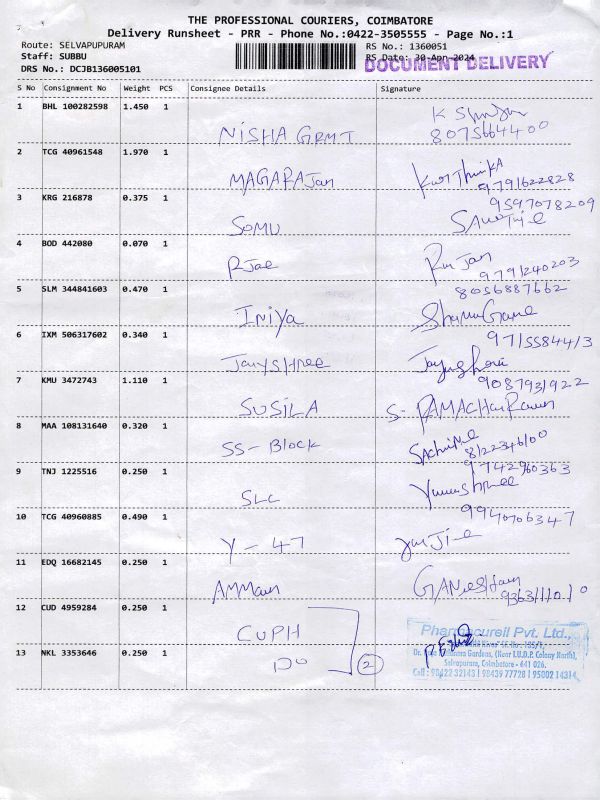 THE PROFESSIONAL COURIERS, COIMBATORE
Delivery Runsheet - PRR - Phone No.:0422-3505555 - Page No.:1
Route: SELVAPUPURAM
RS No.: 1360051
Staff: SUBBU
RS Date: 30-Apr-2024
DOCUMENT DELIVERY
DRS No.: DCJB136005101
S No Consignment No Weight PCS Consignee Details Signature
1 BHL 100282598 1.450 1 NISHA GRMT
8075664400
2 TCG 40961548 1.970 1 MAGARAJan KarThiKA
9791622828
3 KRG 216878 0.375 1 SOMU
9597078209
4 BOD 442080 0.070 1 RJae RaJan
9791240203
5 SLM 344841603 0.470 1 INiYa
8056887662
6 IXM 506317602 0.340 1 JayShree
9715584413
7 KMU 3472743 1.110 1 SUSiLA S- RAMACHan
9087931922
8 MAA 108131640 0.320 1 SS-Block
8122346100
9 TNJ 1225516 0.250 1 SLC
9742960363
10 TCG 40960885 0.490 1 Y-47
9940706347
11 EDQ 16682145 0.250 1 AMMan GANeSHan
9363111010
12 CUD 4959284 0.250 1 CUPH
13 NKL 3353646 0.250 1 DO 2
Pharmacureil Pvt. Ltd.,
Gardens, (Near I.U.D.P. Colony North),
Selvapuram, Coimbatore - 641 026.
Cell : 98422 32143 | 98439 77728 | 95002 14314